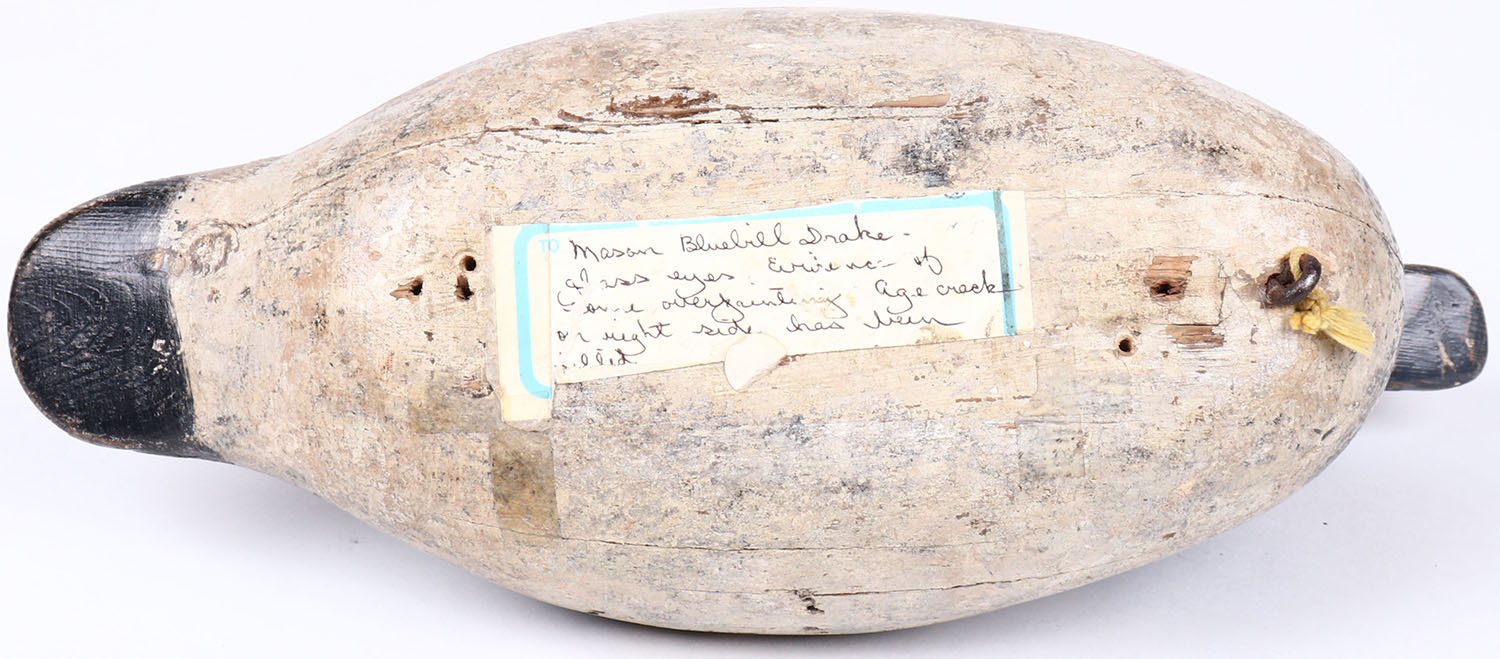 TO
Mason Bluebill Drake.
glass eyes. Evidence of
some overpainting. Age crack
on right side has been